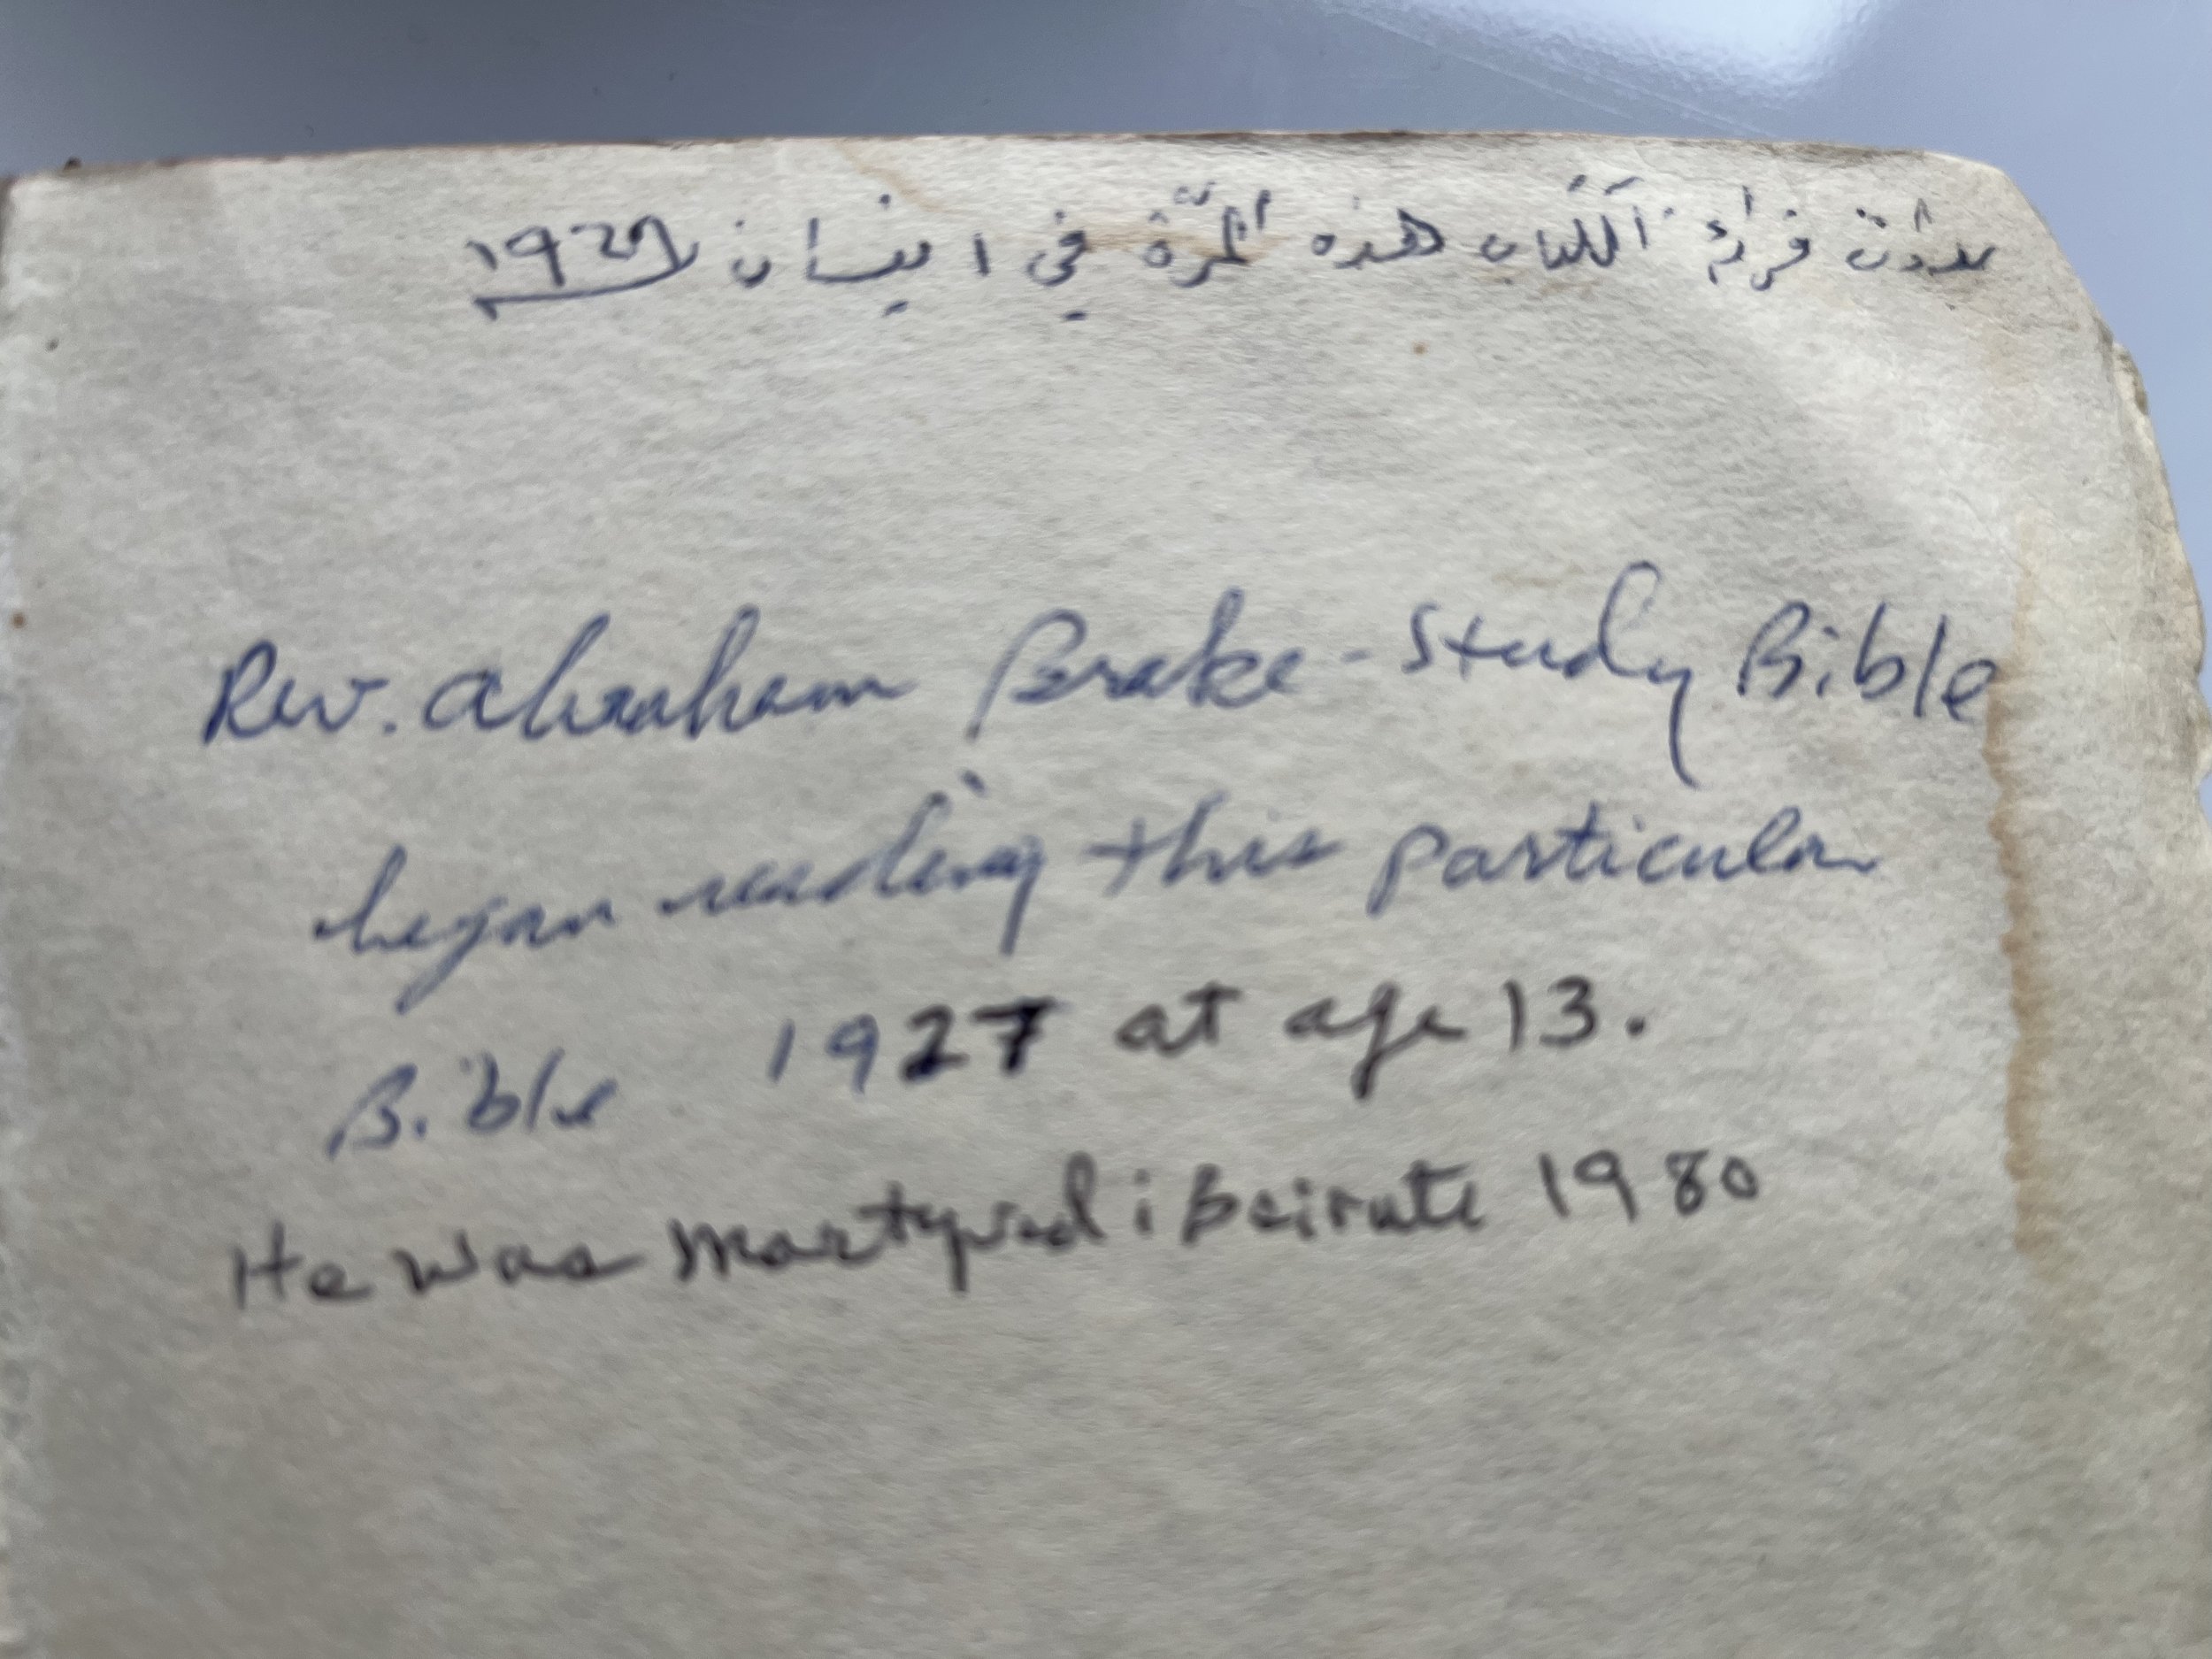 بدأت قراءة الكتاب هذه المرّة في ١ نيسان
Rev. Abraham Brake - Study Bible
began reading this particular
Bible 1927 at age 13.
He was martyred i Beirute 1980